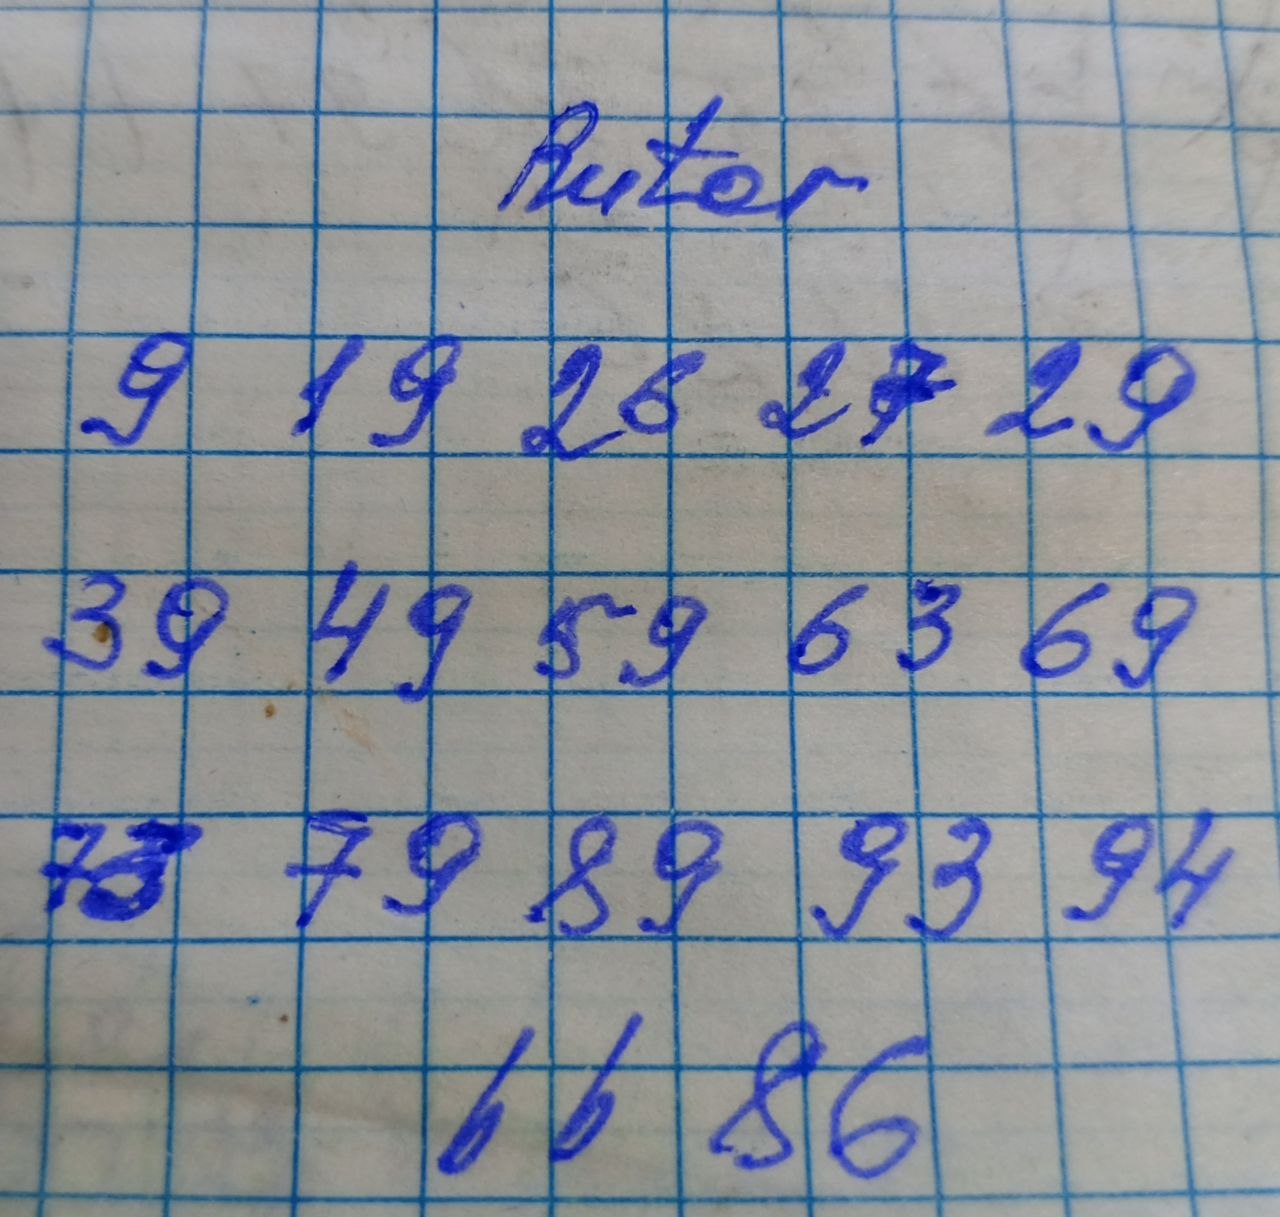 Rutor
9 19 26 27 29
39 49 59 63 69
73 79 89 93 94
66 86